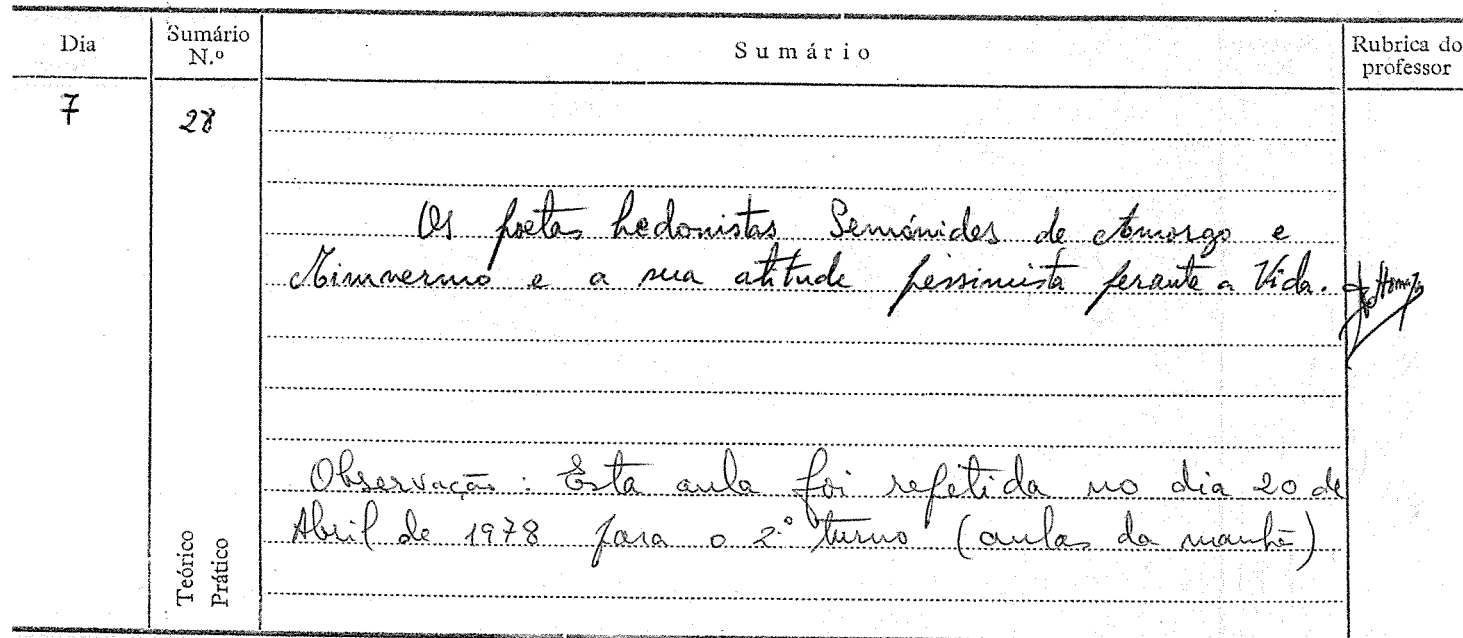 Dia
Sumário
N.º
Sumário
Rubrica do
professor
7
28
Os poetas hedonistas Semónides de Amorgo e
Mimnermo e a sua atitude pessimista perante a Vida.
Observação: Esta aula foi repetida no dia 20 de
Abril de 1978 para o 2.º turno (aulas da manhã)
Teórico
Prático